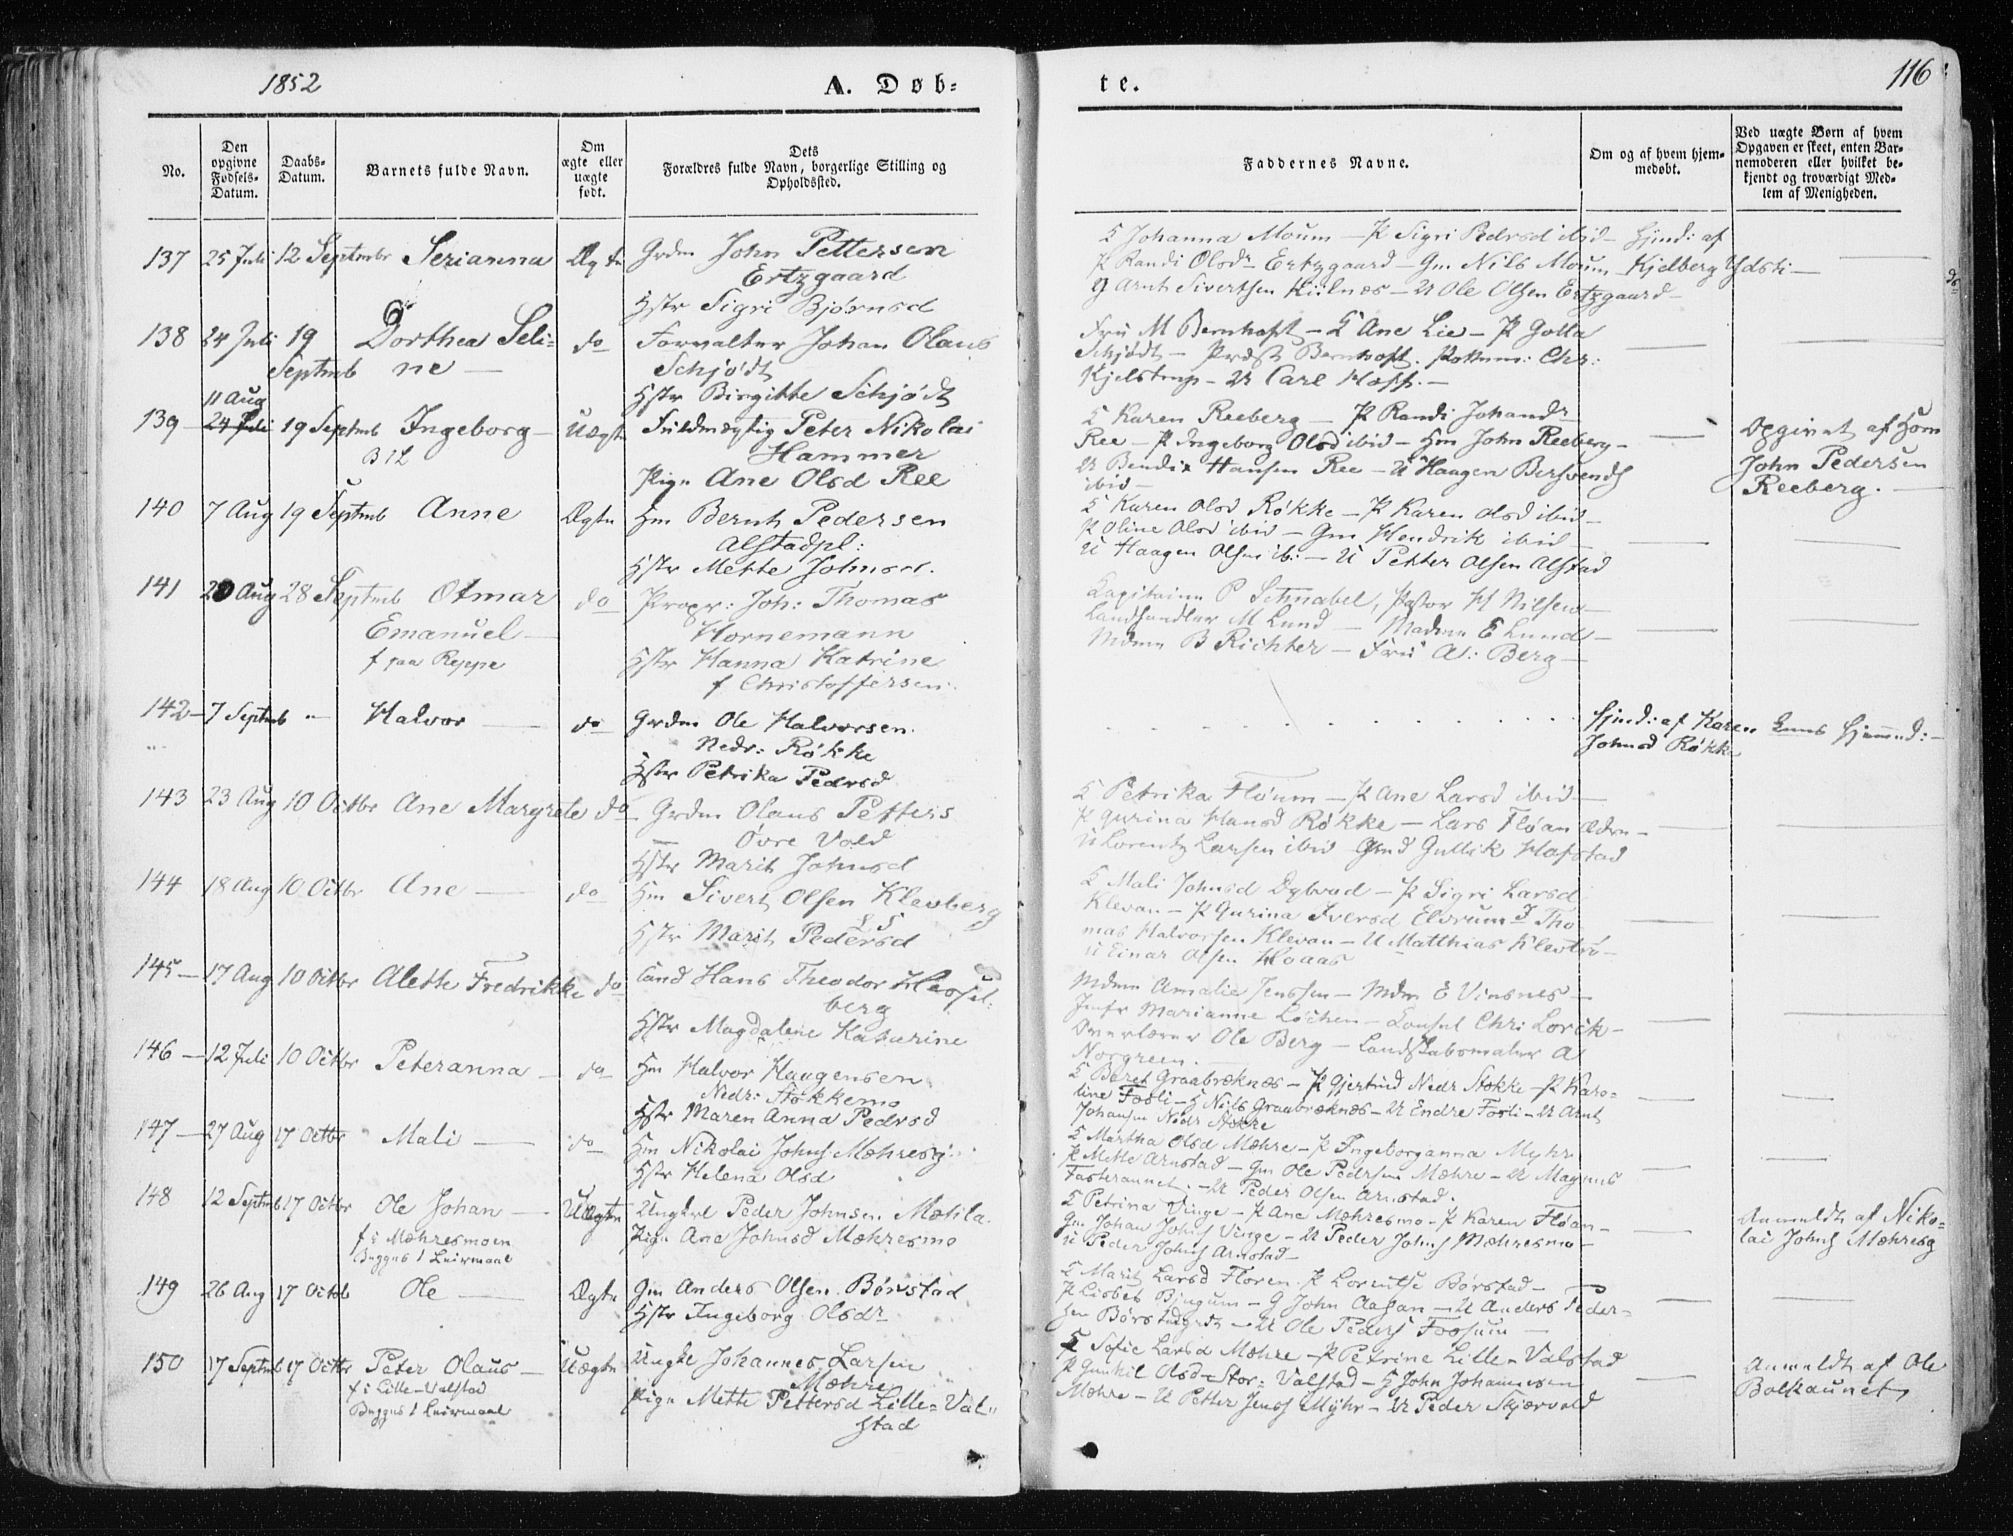 1852
A. Døb-
te.
116
No.
Den opgivne Fødsels-Datum.
Daabs-Datum.
Barnets fulde Navn.
Om ægte eller uægte født.
Dets Forældres fulde Navn, borgerlige Stilling og Opholdssted.
Faddernes Navne.
Om og af hvem hjem-medøbt.
Ved uægte Børn af hvem Opgaven er skeet, enten Bar-nemoderen eller hvilket be-kjendt og troværdigt Med-lem af Menigheden.
137 25 Juli 12 Septmbr Serianna Ægte Grdm John Pettersen
Ertzgaard
Hstr Sigri Bjørnsd
K Johanna Moum - P Sigri Pedersd ibid - Hjmd: af
P Randi Olsdr Ertzgaard - Gm Nils Moum - Kjelberg Ydsti -
G Arnt Sivertsen Kiilnæs - U Ole Olsen Ertzgaard -
138 24 Juli 19 Septmb Dorthea Seli-
ne -
do Forvalter Johan Olaus
Schjødt
Hstr Birgitte Schjødt
Fru M Bernhoft - K Ane Lie - P Golla
Schjødt - Præst Bernhoft. Chr:
Kjelstrup - U Carl Hoff. -
139 11 Aug
24 Juli 19 Septmb Ingeborg -
Uægte Fuldmægtig Peter Nikolai
Hammer
Pige Ane Olsd Ree
K Karen Reeberg - P Randi Johansdr
Ree - P Ingeborg Olsd ibid - Hm John Reeberg -
U Bendix Hansen Ree - U Haagen Bersvends
ibid -
Opgivet af Hm
John Pedersen
Reeberg. -
140 7 Aug 19 Septmb Anne Ægte Hm Bernt Pedersen
Alstadpl:
Hstr Mette Johnsd.
K Karen Olsd Røkke - P Karen Olsd ibid -
P Oline Olsd ibid - Gm Hendrik ibid -
U Haagen Olsen ib: - U Petter Olsen Alstad
141 20 Aug 28 Septmb Otmar
Emanuel -
f paa Reppe
do Propr: Joh: Thomas
Hornemann
Hstr Hanna Katrine
f Christoffersen.
Capitaine P Schnabel, Pastor H Nilsen -
Landhandler M Lund - Madme E Lund -
Mdme B Richter - Fru A: Berg -
142 - 7 Septmb " Halvor - do Grdm Ole Halvorsen.
Nedr: Røkke
Hstr Petrika Pedrsd
Hjmd: af Karen
Johnsd Røkke
Kuns Hjemmd: -
143 23 Aug 10 Octbr Ane Margrete do Grdm Olaus Petters
Øvre Vold
Hstr Marit Johnsd
K Petrika Fløum - P Ane Larsd ibid -
P Gurina Hansd Røkke - Lars Fløan Ædru -
U Lorentz Larsen ibid - Gmd Gullik Hofstad
144 18 Aug 10 Octbr Ane - do Hm Sivert Olsen Klevberg
Hstr Marit Pedersd
K Mali Johnsd Dybvad - P Sigri Larsd
Klevan - P Gurina Iversd Elvrum G Tho
mas Halvorsen Klevan - U Matthias Klevbro -
U Einar Olsen Hoaas
145 - 17 Aug 10 Octbr Alette Fredrikke do Cand Hans Theodor Hessel-
berg
Hstr Magdalene Katarine
Mdme Amalie Jenssen - Mdm E Vinsnes -
Jmfr Marianne Lochen - Consul Chri Lorck -
Overlærer Ole Berg - Landskabsmaler A
Norgreen. -
146 - 12 Juli 10 Octbr Peteranna - do Hm Halvor Haagensen
Nedr: Stokkemo
Hstr Maren Anna Pedrsd
K Beret Graabræknæs - P Gjertrud Nedr Stokke - P Karo-
line Fosli - G Nils Graabræknæs - U Endre Fosli - U Arnt
Johansen Nedr Stokke
147 - 27 Aug 17 Octbr Mali - do Hm Nikolai Johns Mæhresg:
Hstr Helena Olsd
K Martha Olsd Mæhre - P Ingeborganna Myhr
P Mette Arnstad - Gm Ole Pedersen Mæhre - U Magnus
Fasteraunet. - U Peder Olsen Arnstad.
148 12 Septmb 17 Octbr Ole Johan -
f i Mæhresmoen
Begges 1 Leiermaal
Uægte Ungkrl Peder Johnsen Mæhla.
Pige Ane Johnsd Mæhresmo
K Petrina Vinge - P Ane Mæhresmo - P Karen Fløan -
Gm Johan Johns Vinge - U Peder Johns Mæhresmo -
U Peder Johns Arnstad -
Anmeldt af Niko-
lai Johns Mæhresg
149 26 Aug 17 Octbr Ole - Ægte Gm Anders Olsen Børstad
Hstr Ingeborg Olsdr
K Marit Larsd Floren. P Lorentse Børstad -
P Lisbet Bjugum - G John Aasan - U Anders Peder-
sen Børstad - U Ole Peders Fossum -
150 17 Septmb 17 Octbr Peter Olaus -
f i Lille-Valstad
Begges 1 Leiermaal
Uægte Ungkl Johannes Larsen
Mæhre
Pige Mette Pettersd Lille-Val-
stad
K Sofie Larsd Mæhre - P Petrine Lille-Valstad
P Gunhil Olsd Stor-Valstad - G John Johannesen
Mæhre - U Petter Jenss Myhr - U Peder Skjervold
Anmeldt af Ole
Balkaunet